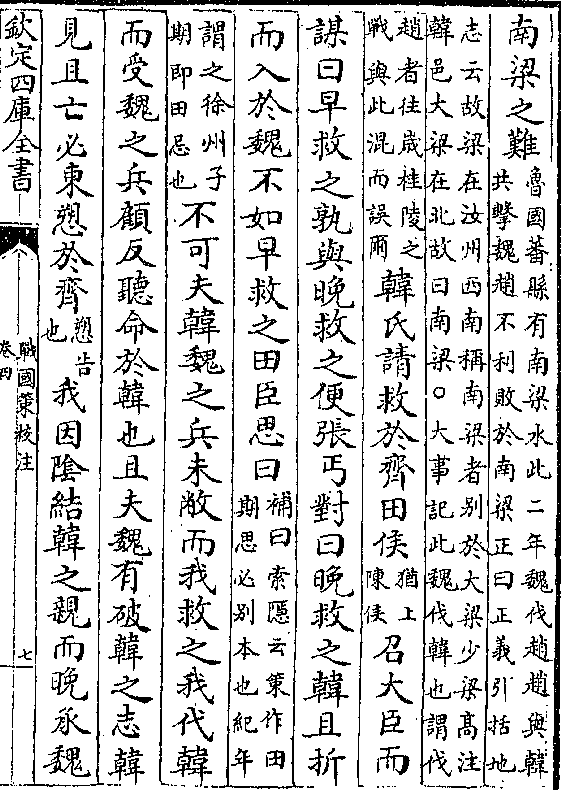 南梁之難魯國蕃縣有南梁水此二年魏伐趙趙與韓共擊魏趙不利敗於南梁正曰正義引括地
志云故梁在汝州西南稱南梁者別於大梁少梁高注韓邑大梁在北故曰南梁○大事記此魏伐韓也謂伐
趙者往歲桂陵之戰與此混而誤爾韓氏請救於齊田侯猶上陳侯召大臣而
謀曰早救之孰與晚救之便張丐對曰晚救之韓且折
而入於魏不如早救之田臣思曰補曰索隱云策作田期思必別本也紀年
謂之徐州子期即田忌也不可夫韓魏之兵未敝而我救之我代韓
而受魏之兵顧反聽命於韓也且夫魏有破韓之志韓
見且亡必東愬於齊愬告也我因陰結韓之親而晚承魏
欽定四庫全書
戰國策校注
卷四
七